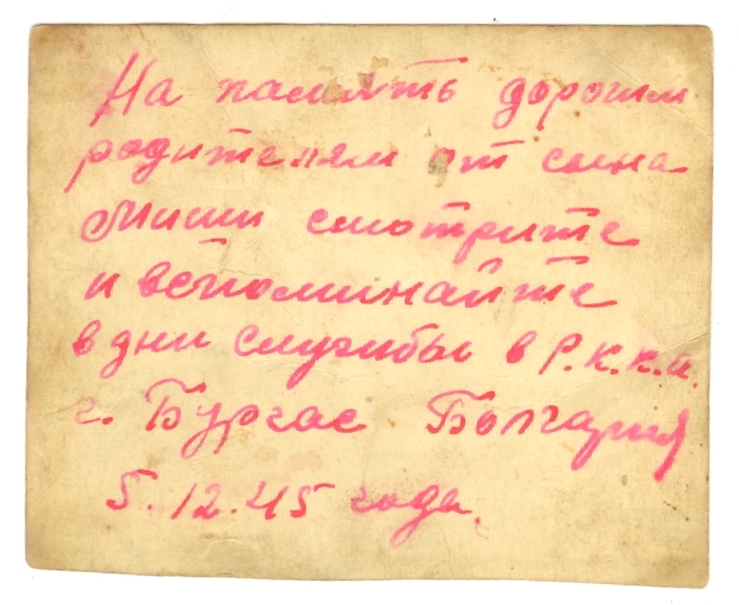 На память дорогим
родителям от сына
Миши смотрите
и вспоминайте
в дни службы в Р.К.К.А.
г. Бургас Болгария
5.12.45 года.